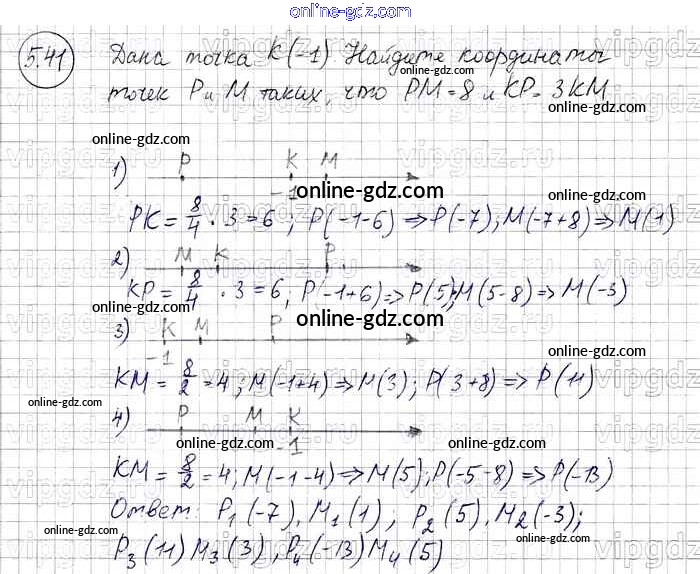 online-gdz.com
5.41 Дана точка K(-1) Найдите координаты
точек P и M таких, что PM=8 и KP=3KM
online-gdz.com
online-gdz.com
vipgdz.ru
1) P K M
-1
online-gdz.com
PK = 8/4 · 3 = 6 ; P(-1-6) ⇒ P(-7); M(-7+8) ⇒ M(1)
online-gdz.com
2) M K P
KP = 8/4 · 3 = 6; P(-1+6) ⇒ P(5); M(5-8) ⇒ M(-3)
online-gdz.com
online-gdz.com
3) K M P
-1
online-gdz.com
KM = 8/2 = 4; M(-1+4) ⇒ M(3); P(3+8) ⇒ P(11)
online-gdz.com
4) P M K
-1
online-gdz.com
online-gdz.com
KM = 8/2 = 4; M(-1-4) ⇒ M(5); P(-5-8) ⇒ P(-13)
online-gdz.com
Ответ: P₁(-7), M₁(1); P₂(5), M₂(-3);
online-gdz.com
P₃(11) M₃(3), P₄(-13) M₄(5)
online-gdz.com